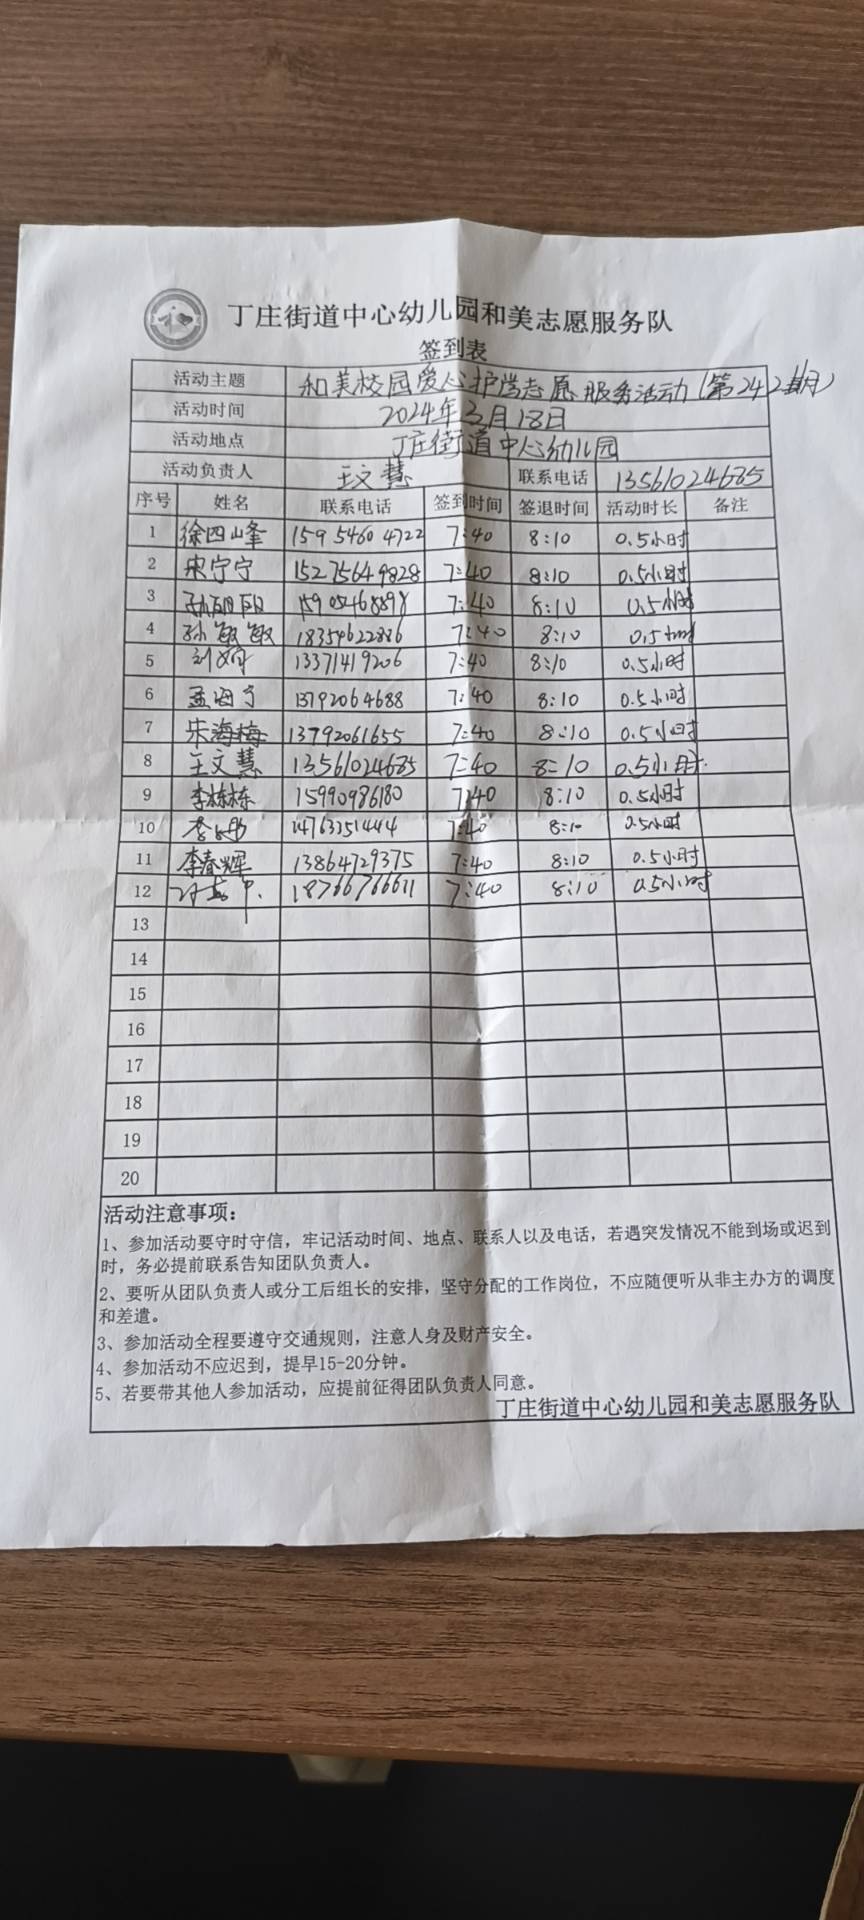 丁庄街道中心幼儿园和美志愿服务队
签到表
活动主题 和美校园爱心护学志愿服务活动(第242期)
活动时间 2024年3月18日
活动地点 丁庄街道中心幼儿园
活动负责人 王文慧 联系电话 13561024685
序号 姓名 联系电话 签到时间 签退时间 活动时长 备注
1 徐四峰 159 5460 4722 7:40 8:10 0.5小时
2 宋宁宁 15275649828 7:40 8:10 0.5小时
3 7:40 8:10 0.5小时
4 孙敏敏 18354622886 7:40 8:10 0.5小时
5 13371419206 7:40 8:10 0.5小时
6 孟海宁 13792064688 7:40 8:10 0.5小时
7 朱海梅 13792061655 7:40 8:10 0.5小时
8 王文慧 13561024685 7:40 8:10 0.5小时
9 李栋栋 15990986180 7:40 8:10 0.5小时
10 7:40 8:10 0.5小时
11 李春辉 13864729375 7:40 8:10 0.5小时
12 18766766611 7:40 8:10 0.5小时
13
14
15
16
17
18
19
20
活动注意事项：
1、参加活动要守时守信，牢记活动时间、地点、联系人以及电话，若遇突发情况不能到场或迟到
时，务必提前联系告知团队负责人。
2、要听从团队负责人或分工后组长的安排，坚守分配的工作岗位，不应随便听从非主办方的调度
和差遣。
3、参加活动全程要遵守交通规则，注意人身及财产安全。
4、参加活动不应迟到，提早15-20分钟。
5、若要带其他人参加活动，应提前征得团队负责人同意。
丁庄街道中心幼儿园和美志愿服务队